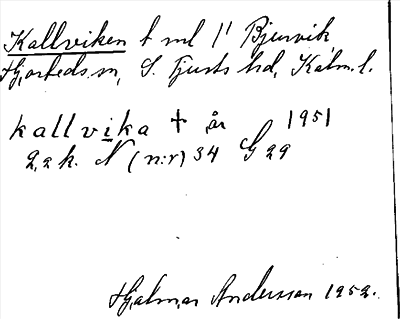 Kallviken t ml /' Bjurvik
Hjorteds sn, S. Tjusts hd, Kalm. l.
kallvika † år 1951
2,2 k. N (n:r) 34 G 29
Hjalmar Andersson 1952.